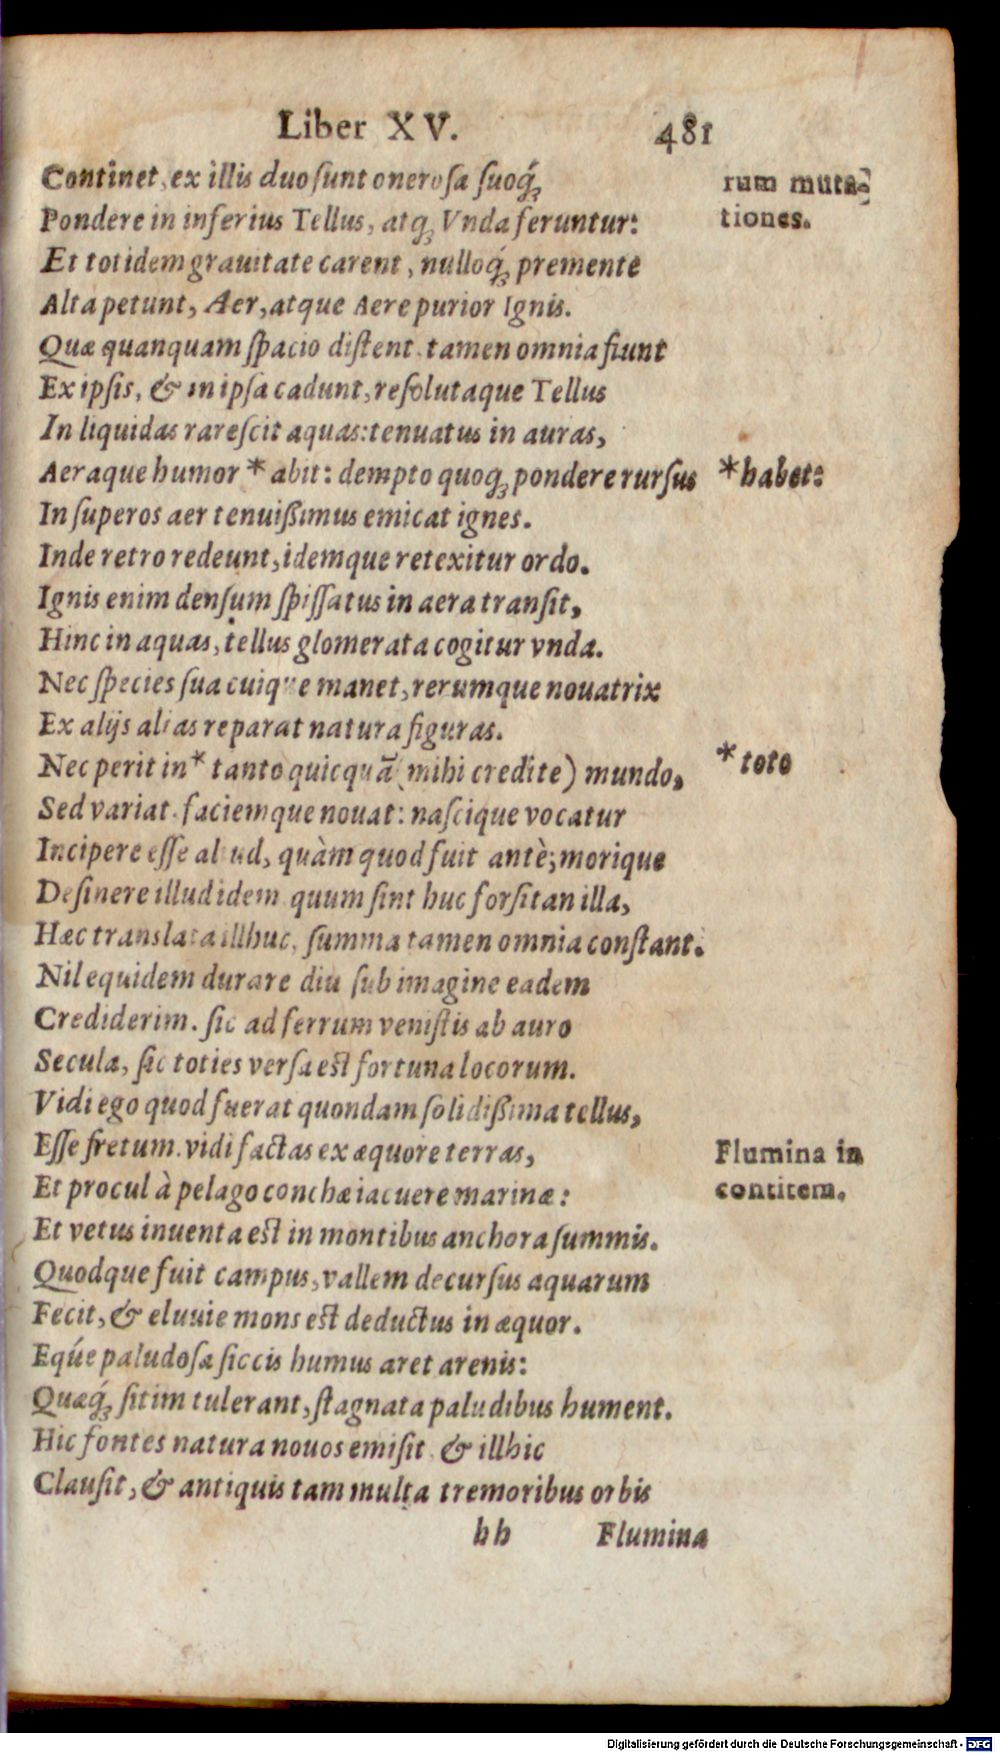 Liber XV. 481
Continet, ex illis duo ſunt oneroſa ſuoq́;
Pondere in inferius Tellus, atq; Vnda feruntur:
Et totidem grauitate carent, nulloq́; premente
Alta petunt, Aer, atque Aere purior Ignis.
Quæ quanquam ſpacio diſtent, tamen omnia fiunt
Ex ipſis, & in ipſa cadunt, reſolutaque Tellus
In liquidas rareſcit aquas: tenuatus in auras,
Aeraque humor * abit: dempto quoq; pondere rurſus
In ſuperos aer tenuißimus emicat ignes.
Inde retro redeunt, idemque retexitur ordo.
Ignis enim denſum ſpiſſatus in aera tranſit,
Hinc in aquas, tellus glomerata cogitur vnda.
Nec ſpecies ſua cuique manet, rerumque nouatrix
Ex alijs alias reparat natura figuras.
Nec perit in * tanto quicquã (mihi credite) mundo,
Sed variat, faciemque nouat: naſcique vocatur
Incipere eſſe aliud, quàm quod fuit antè; morique
Deſinere illud idem. quum ſint huc forſitan illa,
Hæc translata illhuc, ſumma tamen omnia conſtant.
Nil equidem durare diu ſub imagine eadem
Crediderim. ſic ad ferrum veniſtis ab auro
Secula, ſic toties verſa eſt fortuna locorum.
Vidi ego quod fuerat quondam ſolidißima tellus,
Eſſe fretum. vidi factas ex æquore terras,
Et procul à pelago conchæ iacuere marinæ:
Et vetus inuenta eſt in montibus anchora ſummis.
Quodque fuit campus, vallem decurſus aquarum
Fecit, & eluuie mons eſt deductus in æquor.
Eq́ue paludoſa ſiccis humus aret arenis:
Quæq́; ſitim tulerant, ſtagnata paludibus hument.
Hic fontes natura nouos emiſit, & illhic
Clauſit, & antiquis tam multa tremoribus orbis
hh Flumina
rum muta-
tiones.
* habet:
* toto
Flumina in
contitem.
Digitalisierung gefördert durch die Deutsche Forschungsgemeinschaft - DFG